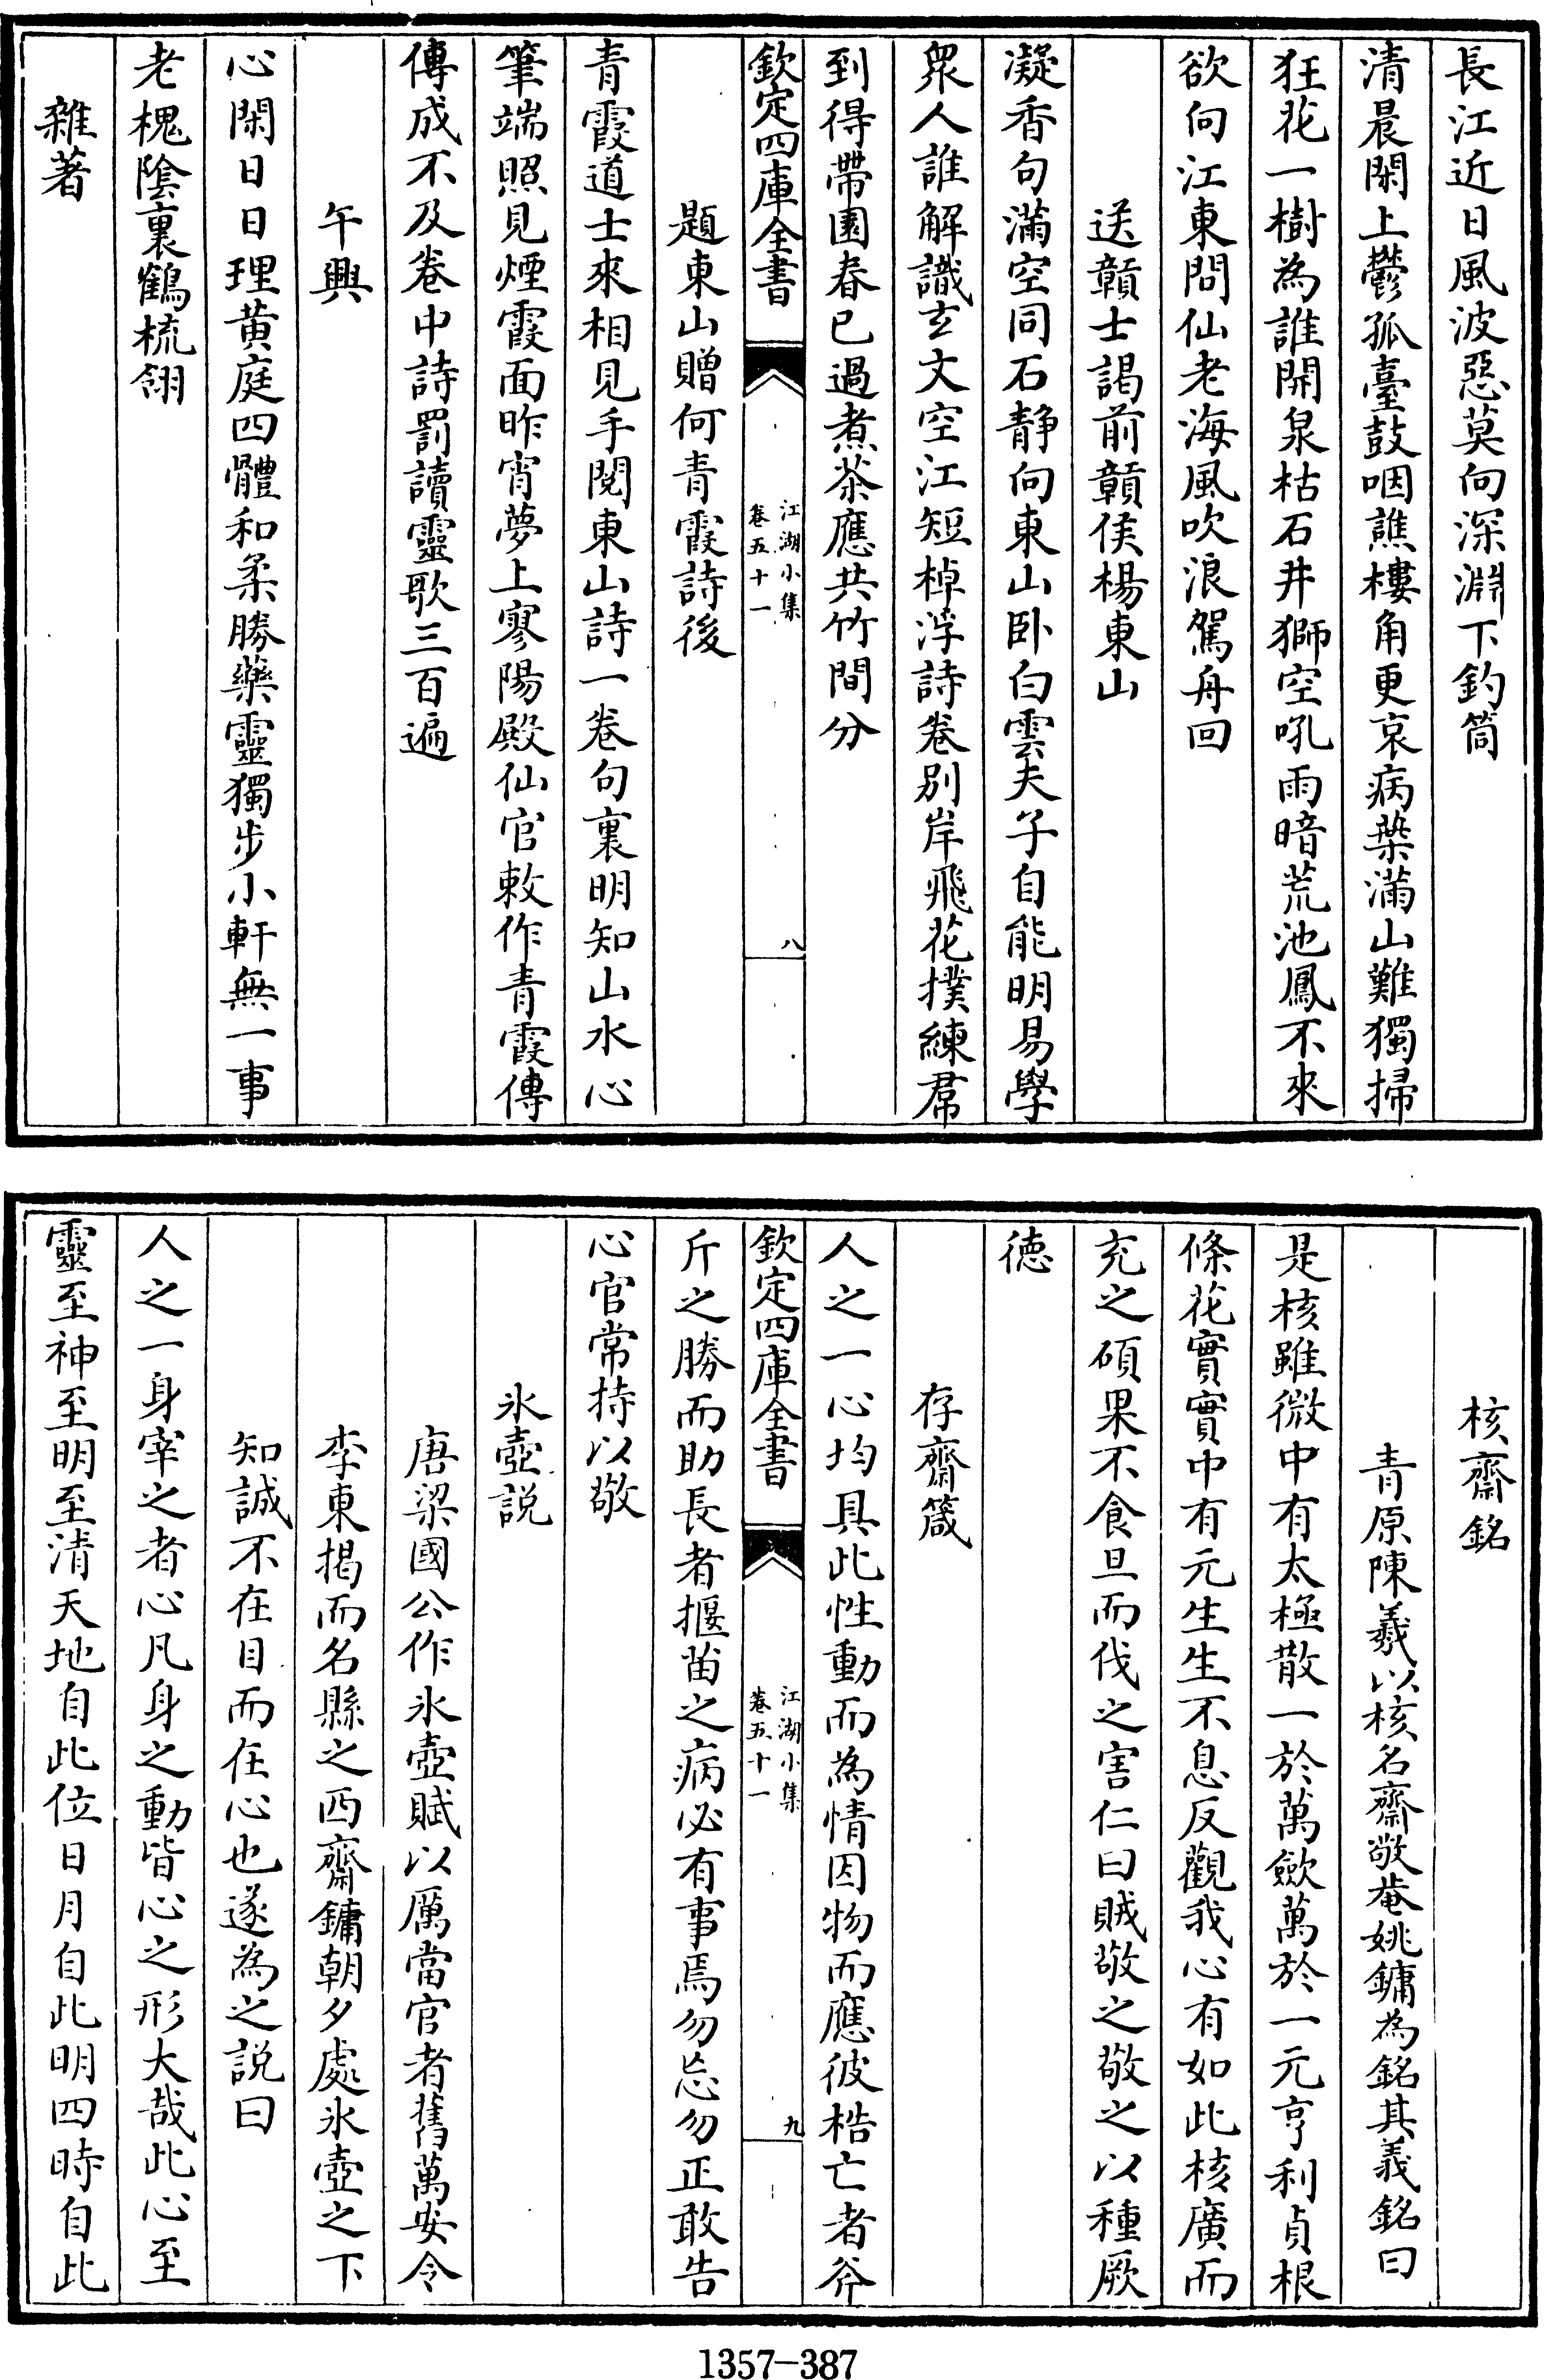 長江近日風波惡莫向深淵下釣筒
清晨閑上鬱孤臺鼓咽譙樓角更哀病葉滿山難獨掃
狂花一樹為誰開泉枯石井獅空吼雨暗荒池鳳不來
欲向江東問仙老海風吹浪駕舟回
送贛士謁前贛侯楊東山
凝香句滿空同石静向東山卧白雲夫子自能明易學
衆人誰解識玄文空江短棹浮詩卷別岸飛花撲練裙
到得帶園春已過煮茶應共竹間分
欽定四庫全書
江湖小集
卷五十一
八
題東山贈何青霞詩後
青霞道士來相見手閱東山詩一卷句裏明知山水心
筆端照見煙霞面昨宵夢上寥陽殿仙官敕作青霞傳
傳成不及卷中詩罰讀靈歌三百遍
午興
心閑日日理黃庭四體和柔勝藥靈獨步小軒無一事
老槐陰裏鶴梳翎
雜著
核齋銘
青原陳羲以核名齋敬菴姚鏞為銘其義銘曰
是核雖微中有太極散一於萬歛萬於一元亨利貞根
條花實實中有元生生不息反觀我心有如此核廣而
充之碩果不食旦而伐之害仁曰賊敬之敬之以種厥
徳
存齋箴
人之一心均具此性動而為情因物而應彼梏亡者斧
欽定四庫全書
江湖小集
卷五十一
九
斤之勝而助長者揠苗之病必有事焉勿忘勿正敢告
心官常持以敬
氷壺説
唐梁國公作氷壺賦以厲當官者舊萬安令
李東揭而名縣之西齋鏞朝夕處氷壺之下
知誠不在目而在心也遂為之説曰
人之一身宰之者心凡身之動皆心之形大哉此心至
靈至神至明至清天地自此位日月自此明四時自此
1357-387